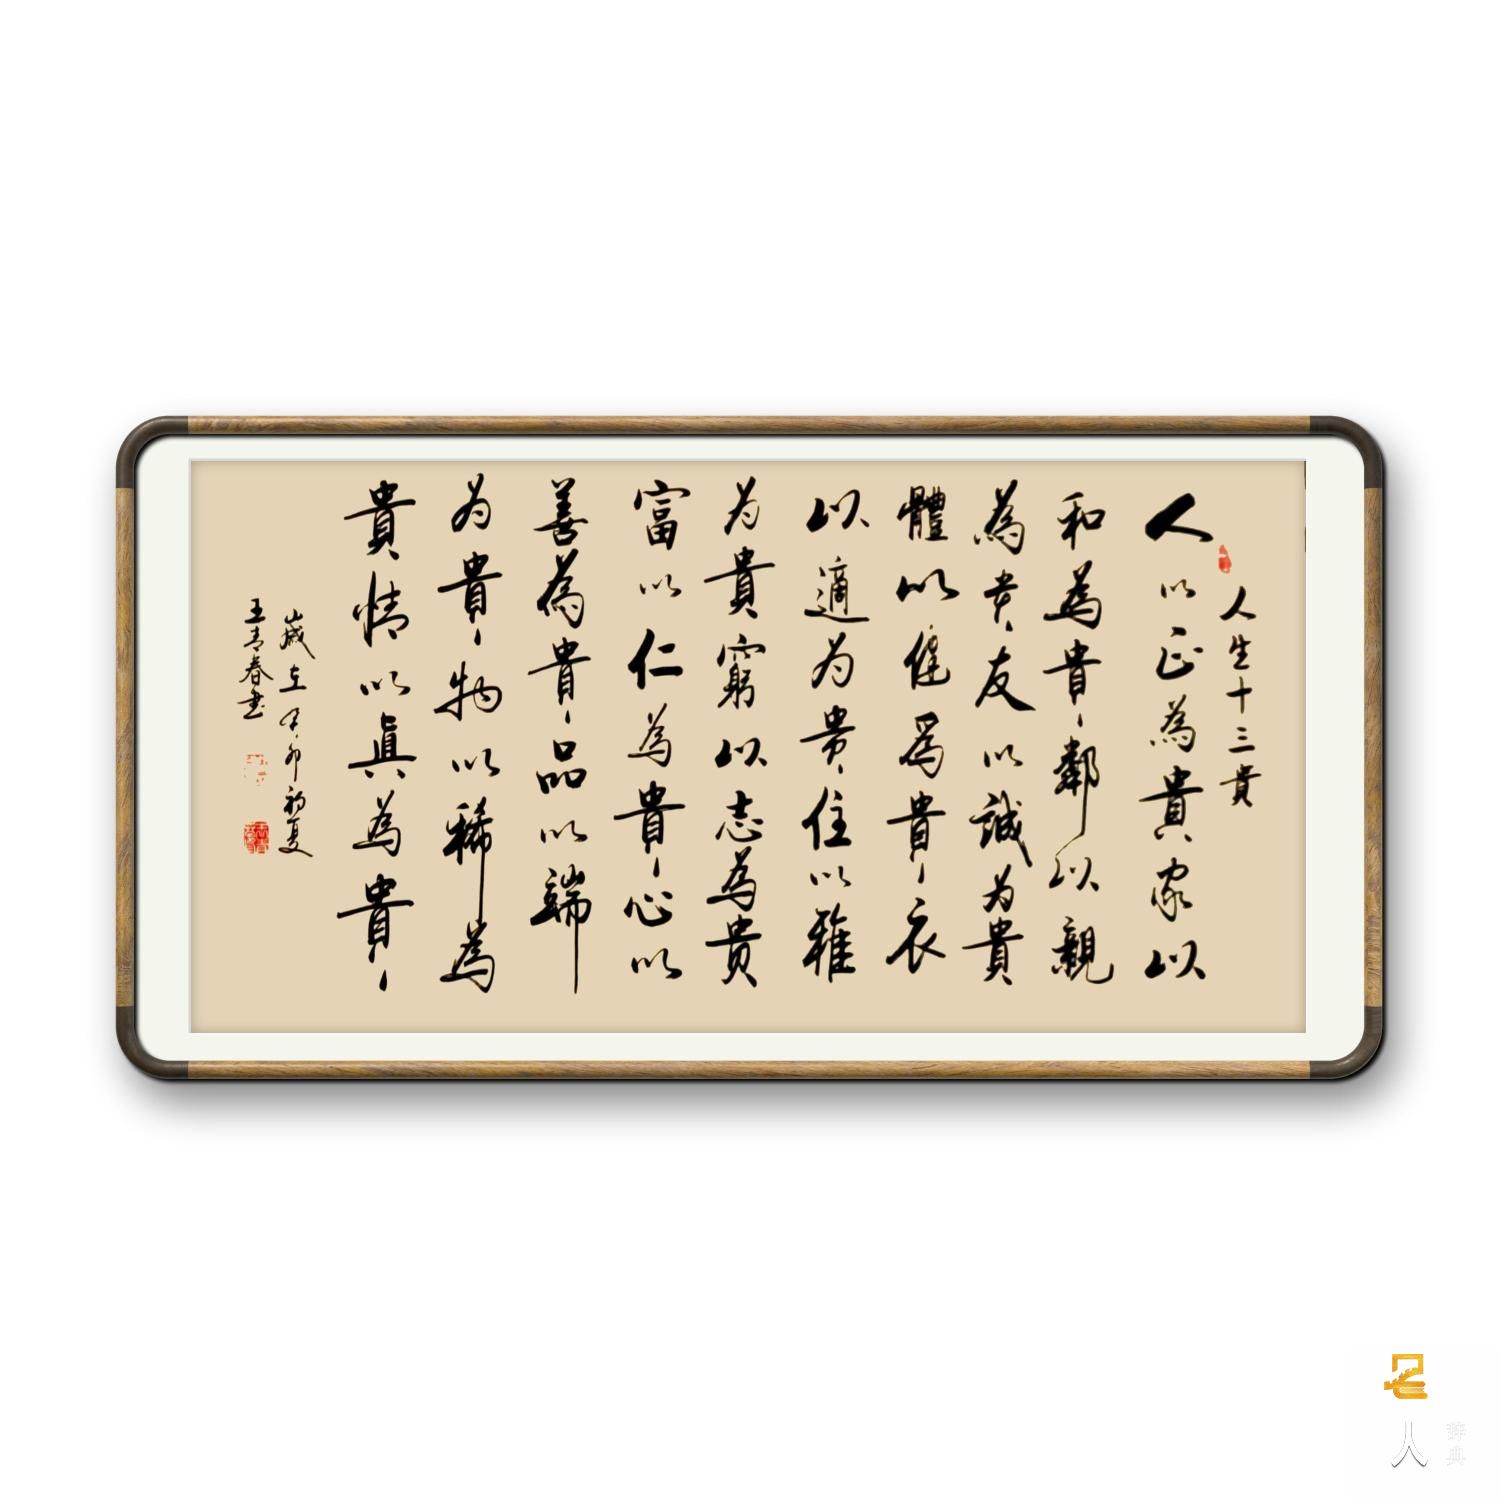 人生十三貴
人以正為貴家以
和為貴、鄰以親
為贵、友以誠为貴
體以健為貴、衣
以適为贵、住以雅
为貴窮以志為贵
富以仁為貴、心以
善為貴、品以端
为貴、物以稀為
貴情以眞為貴、
歲在辛卯初夏
王青春书
名人
辞典